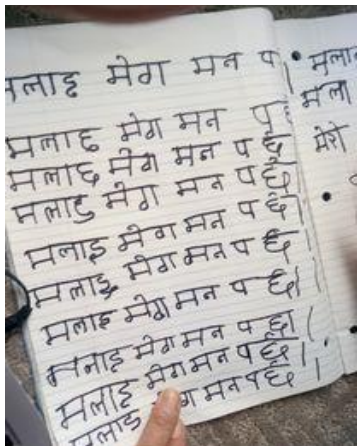 मलाह मेग मन प।
मलाह मेग मन प छ
मलाछ मेग मन प छ
मलाइ मेग मन प छ
मलाइ मेग मन प छ।
मलाइ मेग मन प छ।
मलाइ मेग मन प छ।
मलाइ मेग मन प छ।
मलाइ मेग मन प छ।
मलाइ मेग मन प छ।
मला
मेरो